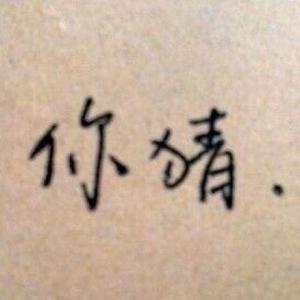 你猜.